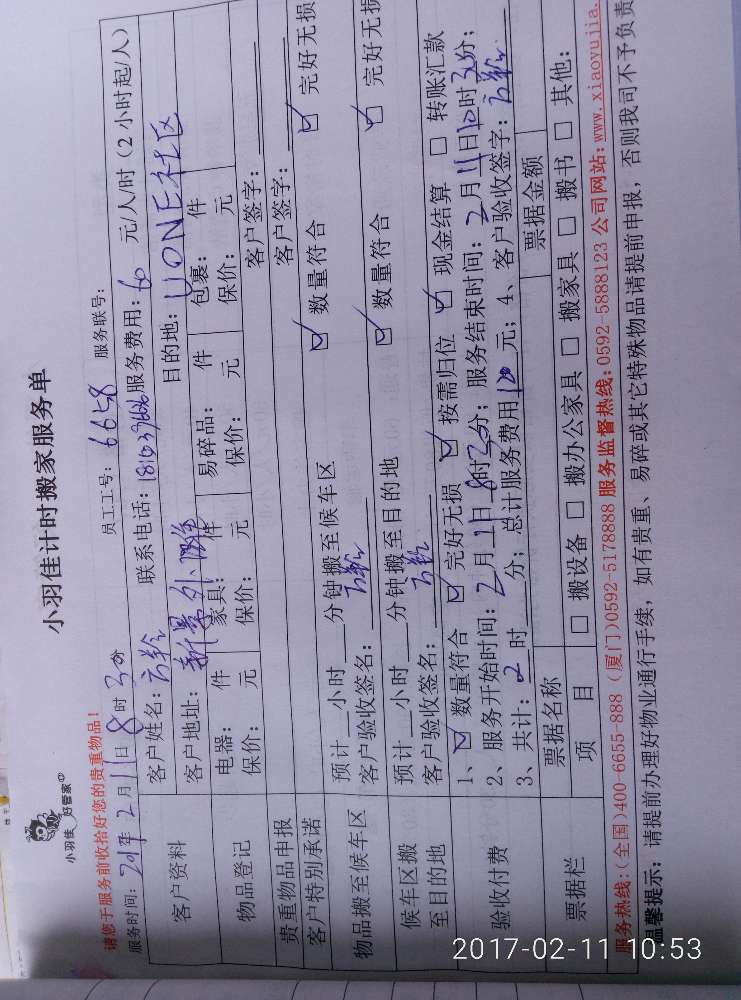 小羽佳计时搬家服务单
小羽佳 好管家
请您于服务前收拾好您的贵重物品！
员工工号：6658 服务联号：
服务时间：2017年2月11日8时30分
客户资料 客户姓名： 联系电话： 服务费用：60元/人/时（2小时起/人）
客户地址：新景外滩 目的地：UONE社区
物品登记 电器： 件 家具： 件 易碎品： 件 包裹： 件
保价： 元 保价： 元 保价： 元 保价： 元
贵重物品申报 客户签字：
客户特别承诺 客户签字：
物品搬至候车区 预计 小时 分钟搬至候车区 ☑ 数量符合 ☑ 完好无损
客户验收签名：
候车区搬至目的地 预计 小时 分钟搬至目的地 ☑ 数量符合 ☑ 完好无损
客户验收签名：
验收付费 1、☑ 数量符合 ☑ 完好无损 ☑ 按需归位 ☑ 现金结算 □ 转账汇款
2、服务开始时间：2月11日8时30分；服务结束时间：2月11日10时30分；
3、共计：2时 分；总计服务费用120元；4、客户验收签字：
票据栏 票据名称 票据金额
项目 □ 搬设备 □ 搬办公家具 □ 搬家具 □ 搬书 □ 其他：
服务热线：(全国)400-6655-888 (厦门)0592-5178888 服务监督热线：0592-5888123 公司网站：www.xiaoyujia.
温馨提示：请提前办理好物业通行手续，如有贵重、易碎或其它特殊物品请提前申报，否则我司不予负责
2017-02-11 10:53